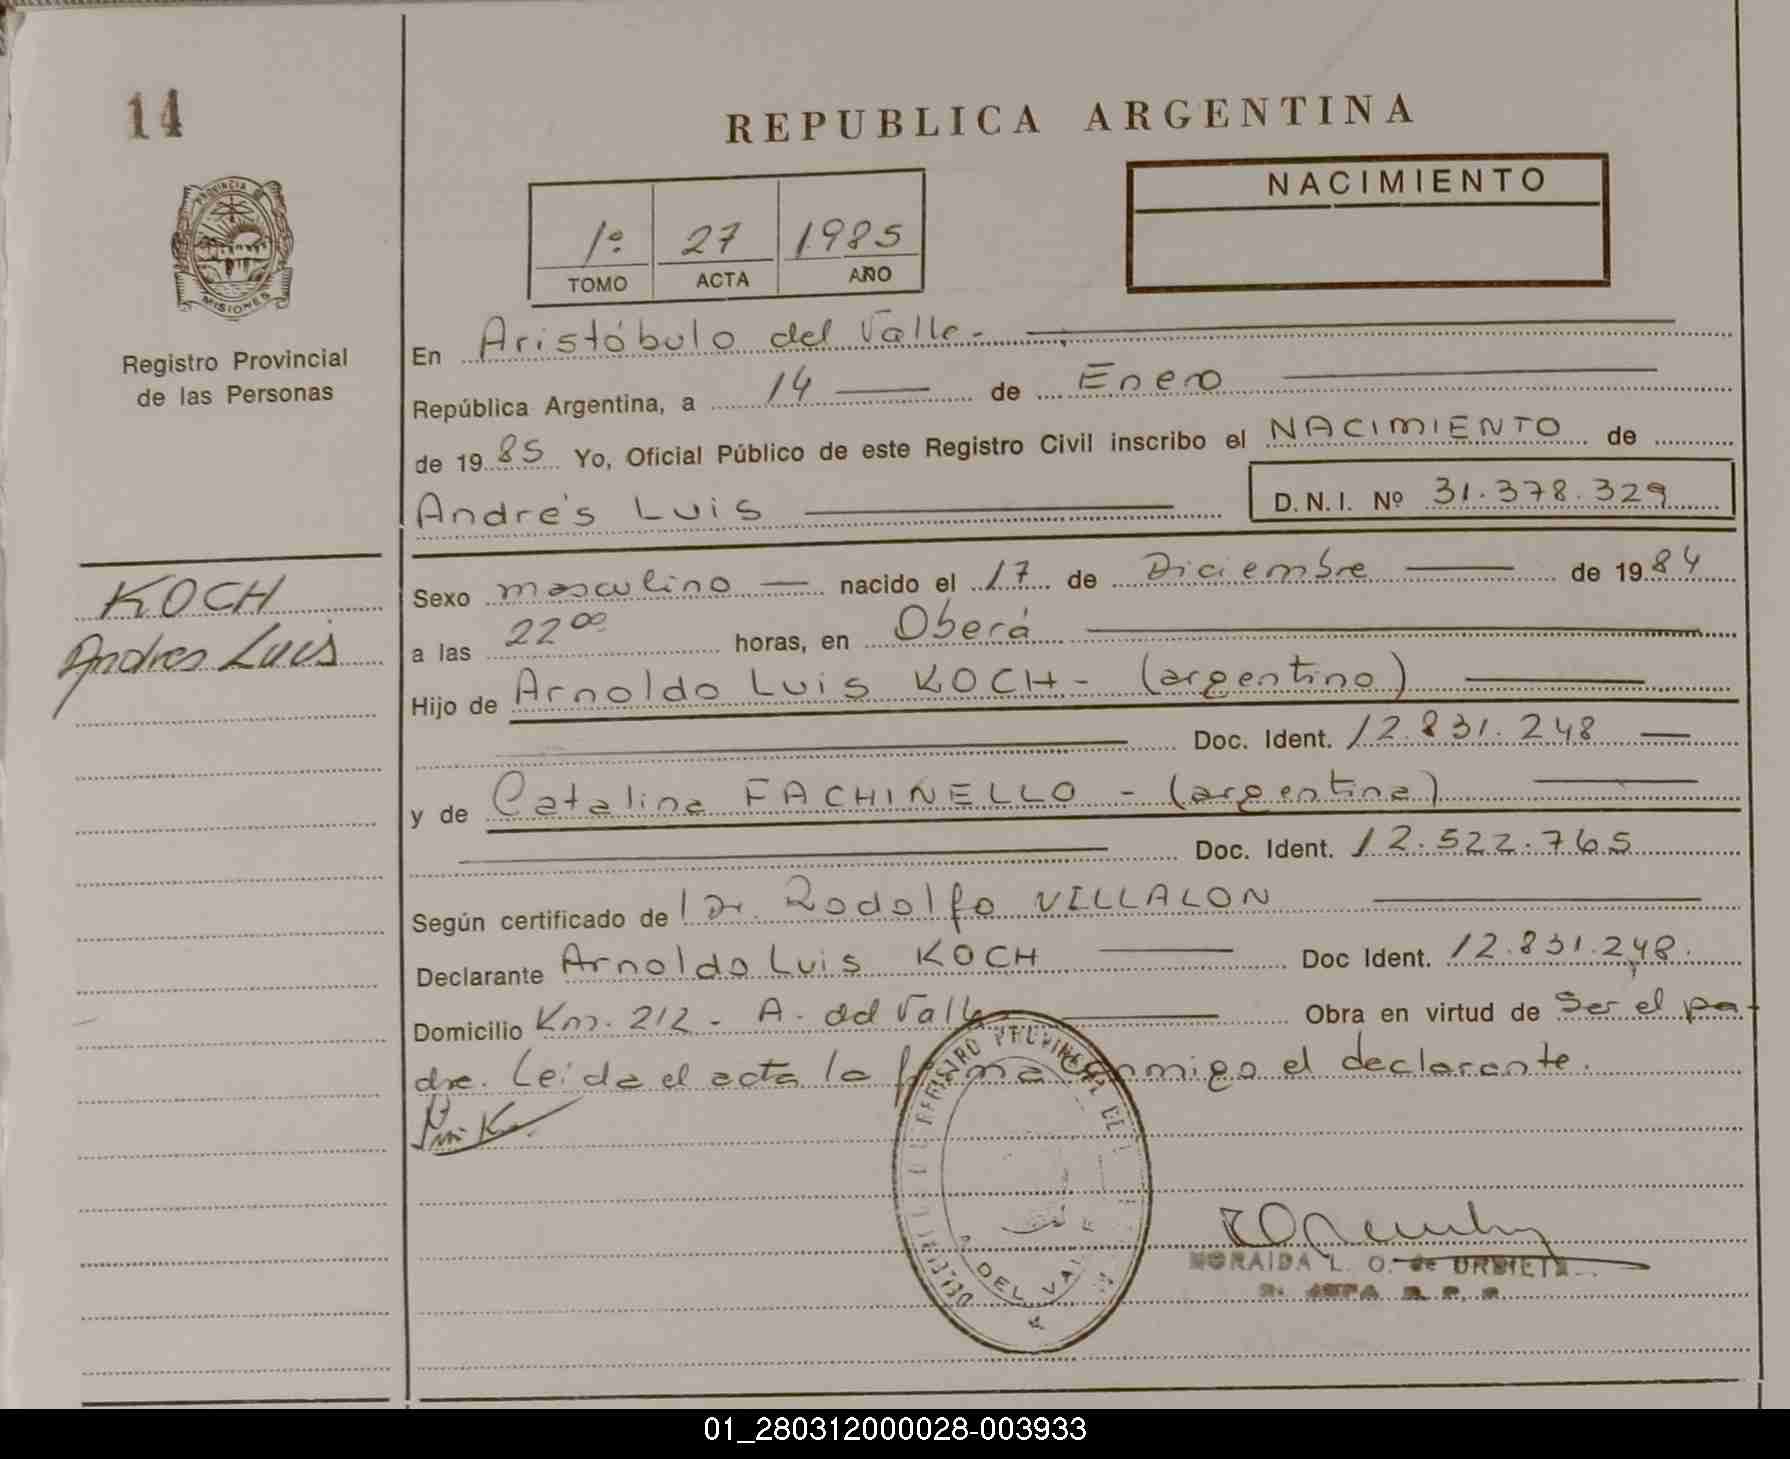 14
REPUBLICA ARGENTINA
NACIMIENTO
1º 27 1985
TOMO ACTA AÑO
PROVINCIA DE
MISIONES
Registro Provincial
de las Personas
En Aristóbulo del Valle.-
República Argentina, a 14 de Enero
de 1985 Yo, Oficial Público de este Registro Civil inscribo el NACIMIENTO de
Andrés Luis D.N.I. Nº 31.378.329
KOCH
Andres Luis
Sexo masculino nacido el 17 de Diciembre de 1984
a las 22 00 horas, en Oberá
Hijo de Arnoldo Luis KOCH - (argentino)
Doc. Ident. 12.831.248
y de Catalina FACHINELLO - (argentina)
Doc. Ident. 12.522.765
Según certificado de Dr. Rodolfo VILLALON
Declarante Arnoldo Luis KOCH Doc Ident. 12.831.248.
Domicilio Km. 212 - A. del Valle Obra en virtud de Ser el pa-
dre. Leída el acta la firma conmigo el declarante.
REGISTRO PROVINCIAL DE
DEL VALLE
NORAIDA L. O. de URBIETA
01_280312000028-003933